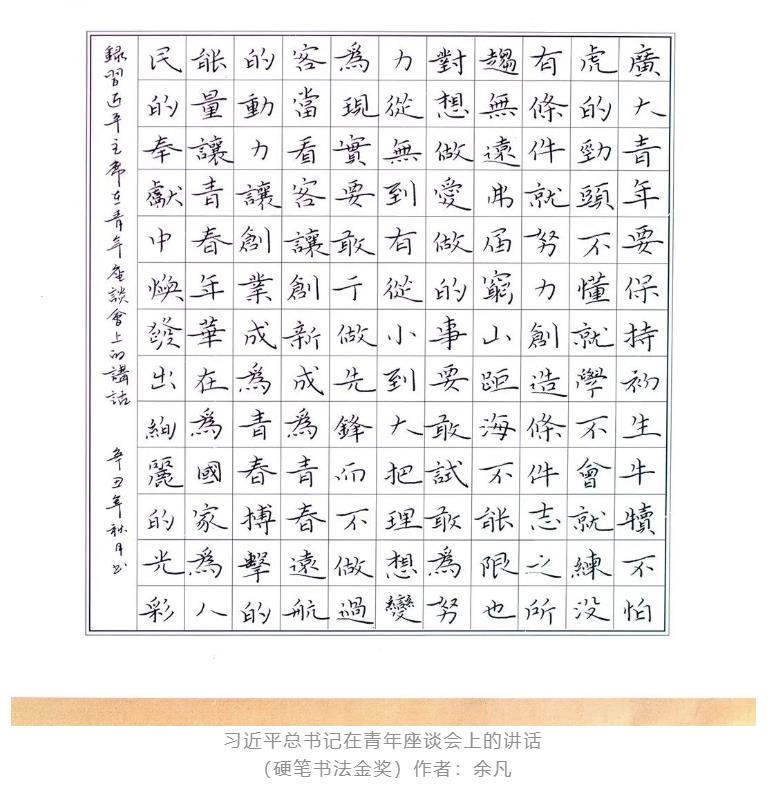 廣大青年要保持初生牛犢不怕
虎的勁頭不懂就學不會就練没
有條件就努力創造條件志之所
趨無遠弗届窮山距海不能限也
對想做愛做的事要敢試敢爲努
力從無到有從小到大把理想變
爲現實要敢于做先鋒而不做過
客當看客讓創新成爲青春遠航
的動力讓創業成爲青春搏擊的
能量讓青春年華在爲國家爲人
民的奉獻中焕發出絢麗的光彩
録習近平主席在青年座談會上的講話 辛丑年秋月书
习近平总书记在青年座谈会上的讲话
（硬笔书法金奖）作者：余凡